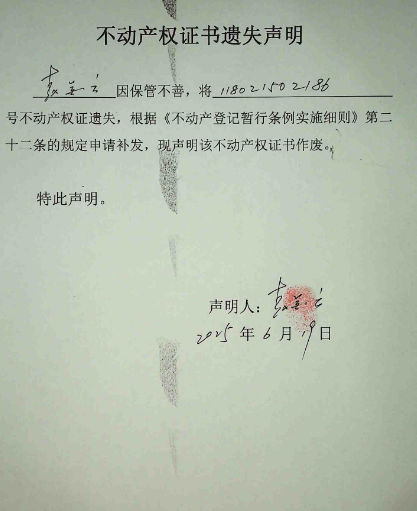 不动产权证书遗失声明
因保管不善，将 118021502186
号不动产权证遗失，根据《不动产登记暂行条例实施细则》第二
十二条的规定申请补发，现声明该不动产权证书作废。
特此声明。
声明人：
2025 年 6 月 19 日